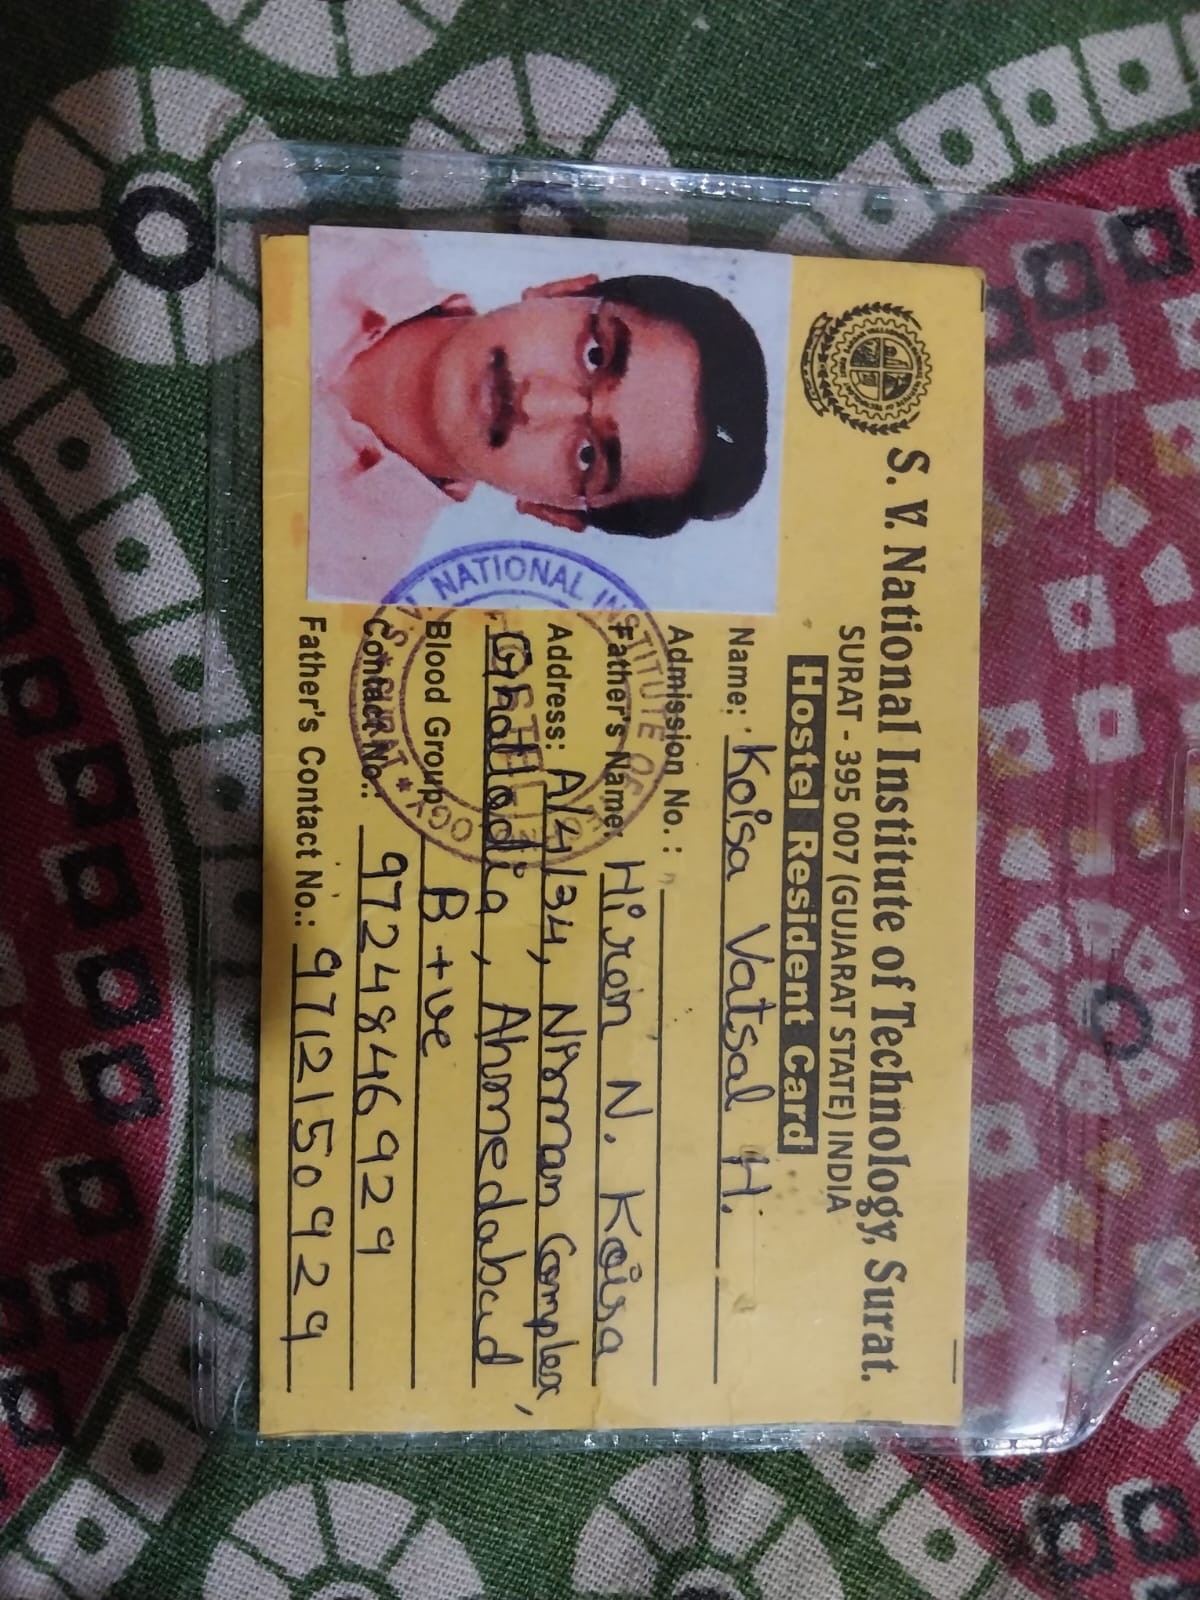 S. V. National Institute of Technology, Surat.
SURAT - 395 007 (GUJARAT STATE) INDIA
Hostel Resident Card
Name: Koisa Vatsal H.
Admission No. :
Father's Name: Hiren N. Koisa
Address: A/4/34, Nirman Complex,
Ghatlodia, Ahmedabad
Blood Group: B +ve
Contact No.: 9724846929
Father's Contact No.: 9712150929
S. V. NATIONAL INSTITUTE OF
SURAT